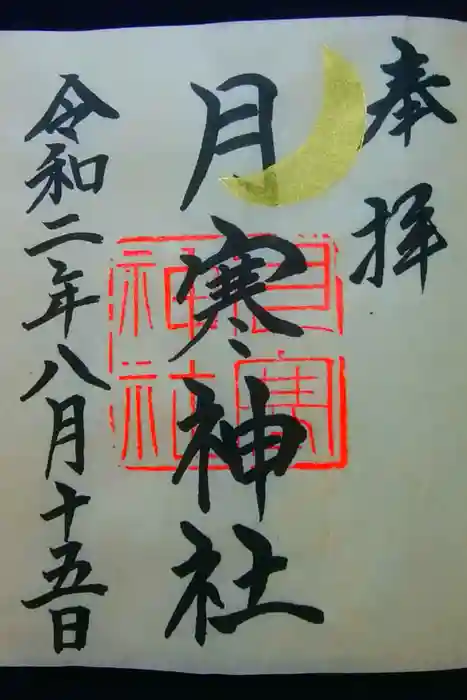 奉拝
月寒神社
月寒神社
令和二年八月十五日